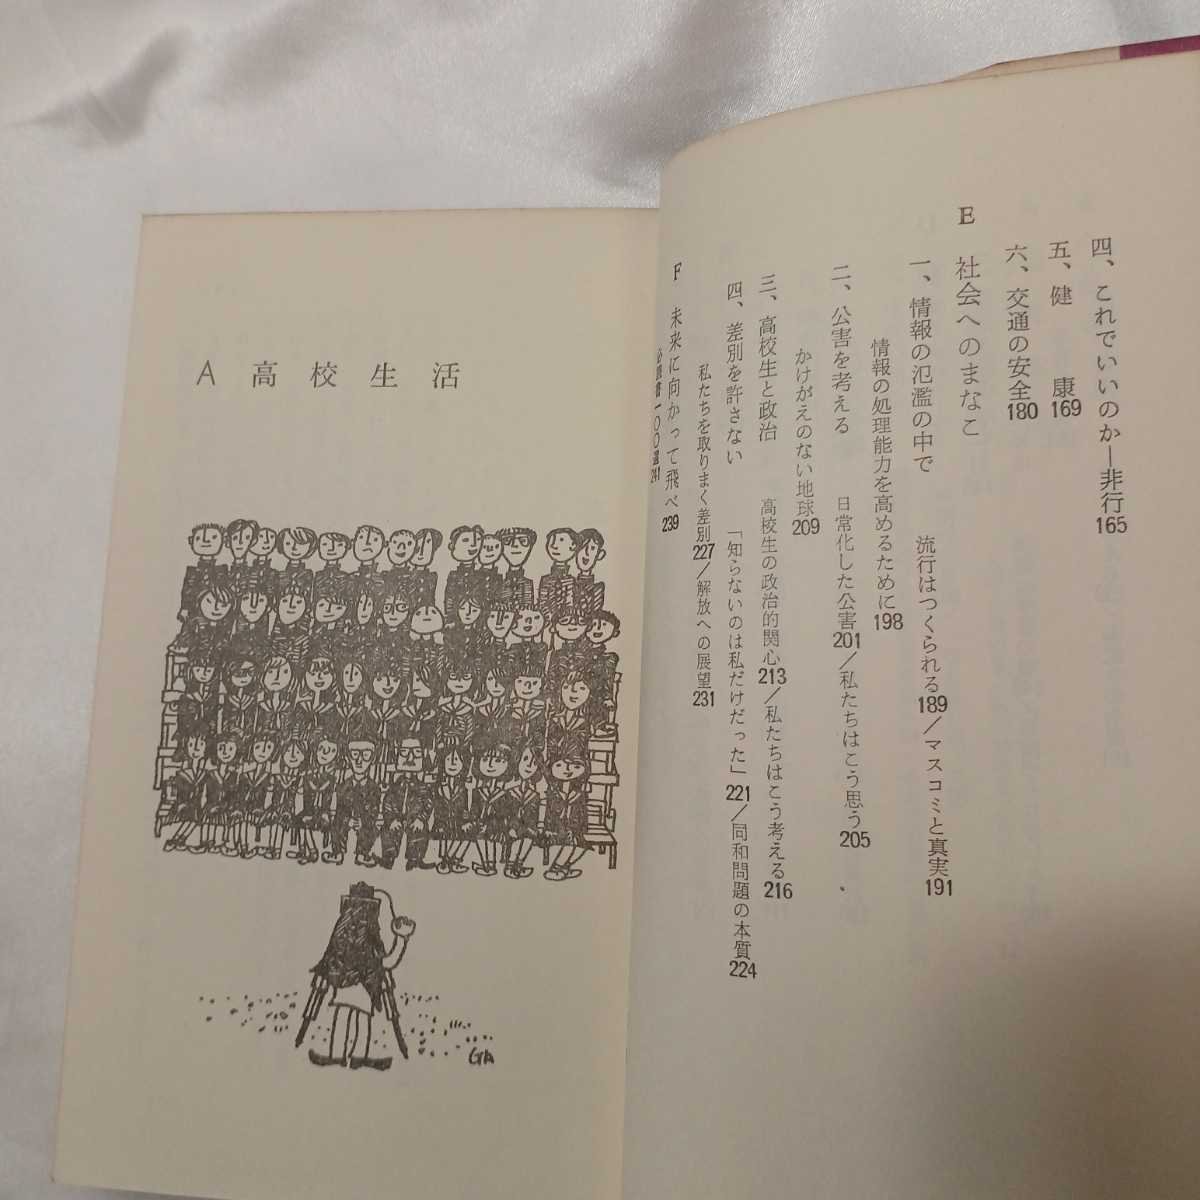 四、これでいいのか―非行165
五、健康169
六、交通の安全180
E 社会へのまなこ
一、情報の氾濫の中で 流行はつくられる189/マスコミと真実191
情報の処理能力を高めるために198
二、公害を考える 日常化した公害201/私たちはこう思う205
かけがえのない地球209
三、高校生と政治 高校生の政治的関心213/私たちはこう考える216
四、差別を許さない 「知らないのは私だけだった」221/同和問題の本質224
私たちを取りまく差別227/解放への展望231
F 未来に向かって飛べ239
必読書一〇〇選241
A 高校生活
GA